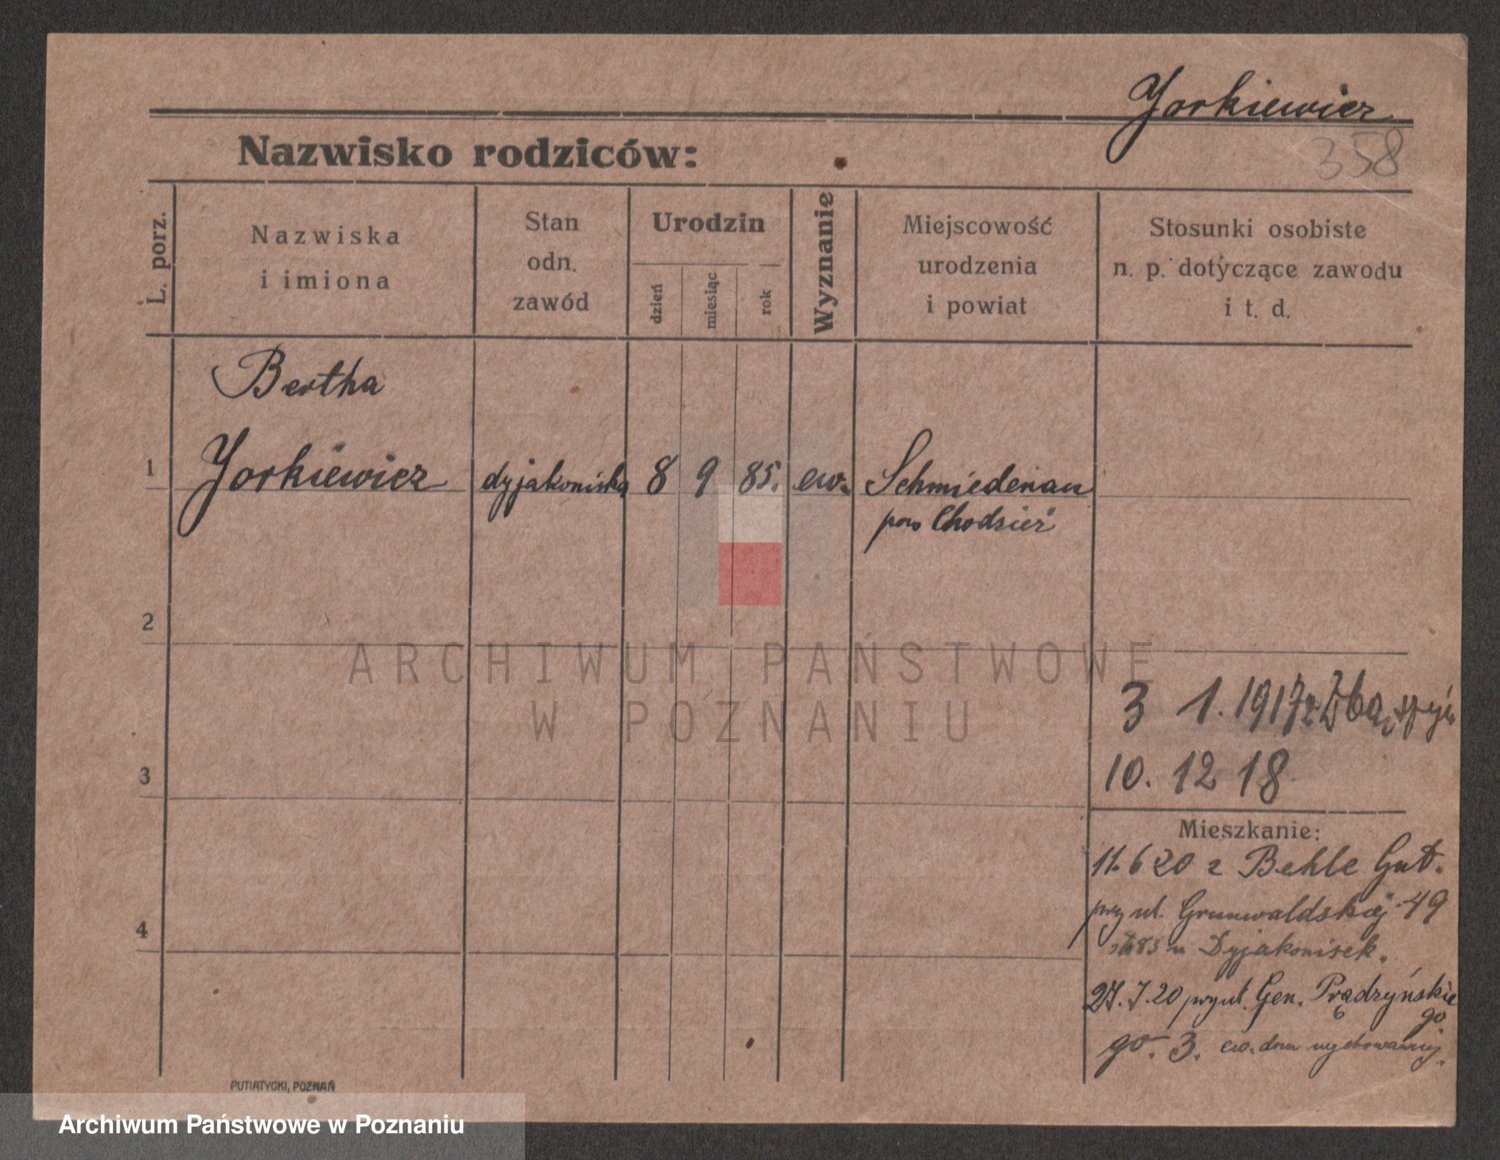 Yorkiewicz
358
Nazwisko rodziców:
L. porz.
Nazwiska
i imiona
Stan
odn.
zawód
Urodzin
dzień
miesiąc
rok
Wyznanie
Miejscowość
urodzenia
i powiat
Stosunki osobiste
n. p. dotyczące zawodu
i t. d.
Bertha
1 Yorkiewicz dyjakoniska 8 9 85. ew. Schmiedenau
pow Chodzież
2
ARCHIWUM PAŃSTWOWE
W POZNANIU
3 1. 1917 z
3
10. 12 18
Mieszkanie:
11. 6 20 z Behle Gut.
przy ul. Grunwaldskiej 49
4
u Dyjakonisek.
27. 7. 20 przy ul. Gen. Prądzyńskie
go
go. 3. ew. dom wychowawczy.
PUTIATYCKI, POZNAŃ
Archiwum Państwowe w Poznaniu